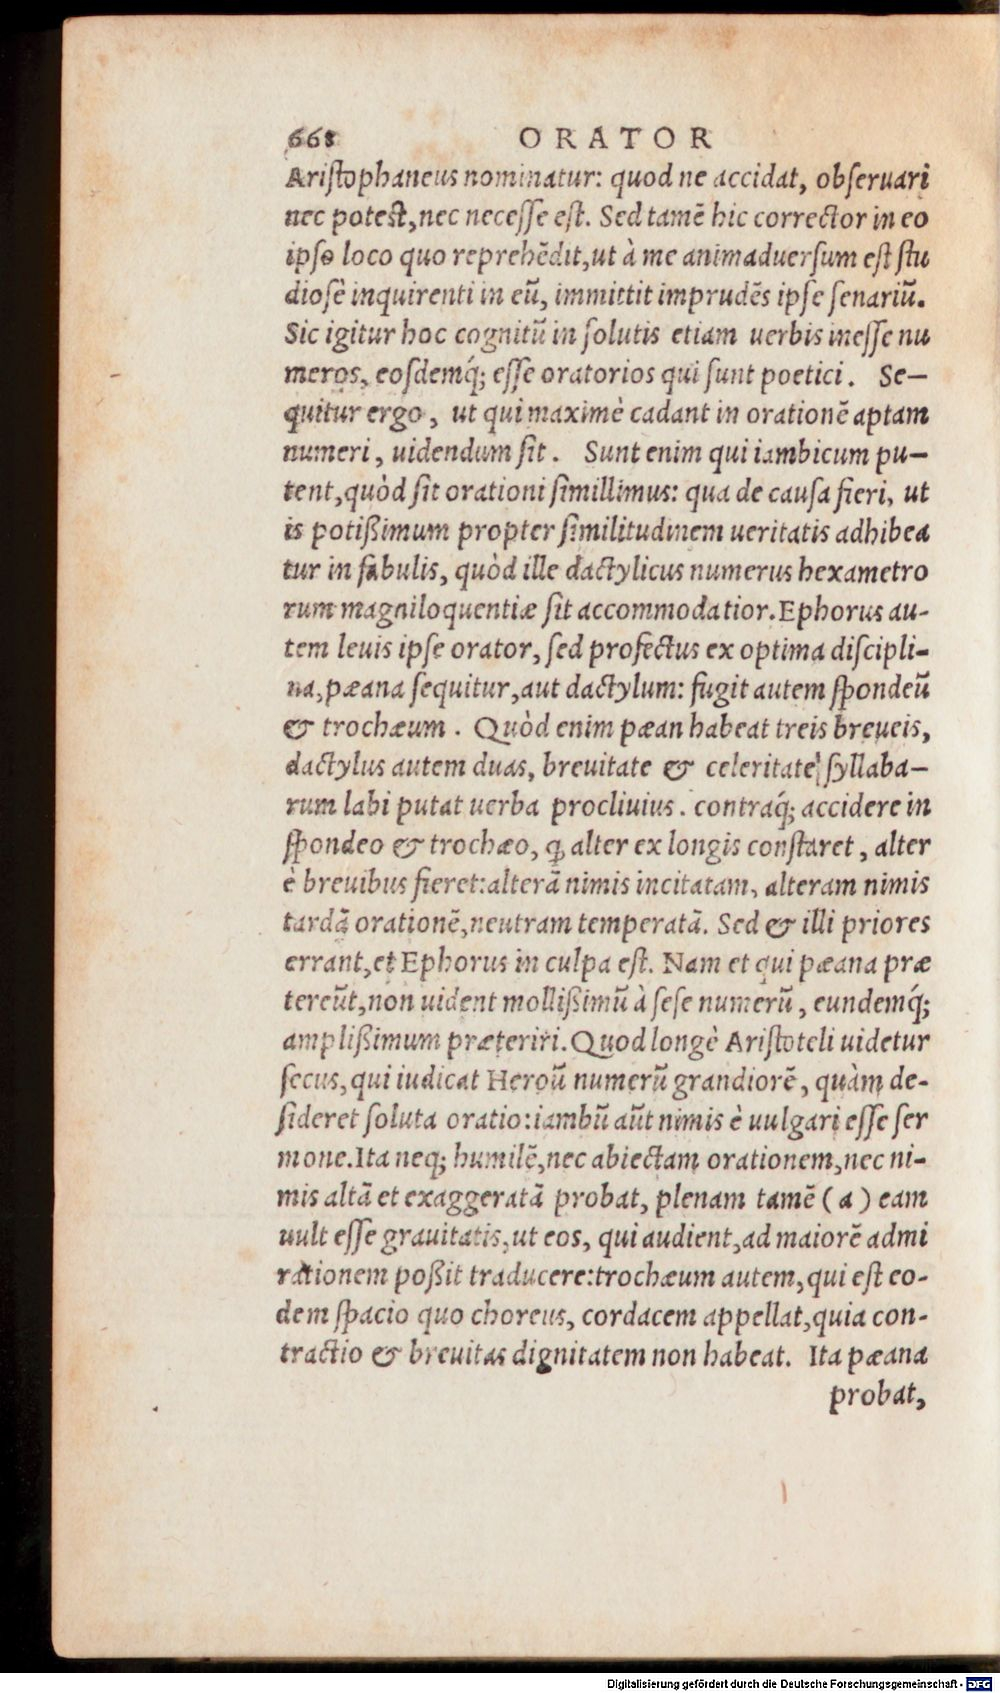 668 ORATOR
Aristophaneus nominatur: quod ne accidat, obseruari
nec potest, nec necesse est. Sed tamē hic corrector in eo
ipso loco quo reprehēdit, ut à me animaduersum est stu
diosè inquirenti in eū, immittit imprudēs ipse senariū.
Sic igitur hoc cognitū in solutis etiam uerbis inesse nu
meros, eosdemq́; esse oratorios qui sunt poetici. Se—
quitur ergo, ut qui maximè cadant in orationē aptam
numeri, uidendum sit. Sunt enim qui iambicum pu—
tent, quòd sit orationi simillimus: qua de causa fieri, ut
is potißimum propter similitudinem ueritatis adhibea
tur in fabulis, quòd ille dactylicus numerus hexametro
rum magniloquentiæ sit accommodatior. Ephorus au-
tem leuis ipse orator, sed profectus ex optima discipli-
na, pæana sequitur, aut dactylum: fugit autem spondeū
& trochæum. Quòd enim pæan habeat treis breueis,
dactylus autem duas, breuitate & celeritate syllaba—
rum labi putat uerba procliuius. contraq́; accidere in
spondeo & trochæo, ꝙ alter ex longis constaret, alter
è breuibus fieret: alterā nimis incitatam, alteram nimis
tardā orationē, neutram temperatā. Sed & illi priores
errant, et Ephorus in culpa est. Nam et qui pæana præ
tereūt, non uident mollißimū à sese numerū, eundemq́;
amplißimum præteriri. Quod longè Aristoteli uidetur
secus, qui iudicat Heroū numerū grandiorē, quàm de-
sideret soluta oratio: iambū aūt nimis è uulgari esse ser
mone. Ita neq; humilē, nec abiectam orationem, nec ni-
mis altā et exaggeratā probat, plenam tamē (a) eam
uult esse grauitatis, ut eos, qui audient, ad maiorē admi
rationem poßit traducere: trochæum autem, qui est eo-
dem spacio quo choreus, cordacem appellat, quia con-
tractio & breuitas dignitatem non habeat. Ita pæana
probat,
Digitalisierung gefördert durch die Deutsche Forschungsgemeinschaft - DFG